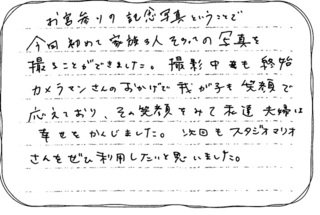 お宮参りの記念写真ということで
今回初めて家族3人そろっての写真を
撮ることができました。撮影中も終始
カメラマンさんのおかげで我が子も笑顔で
応えており、その笑顔をみて私達夫婦は
幸せをかんじました。次回もスタジオマリオ
さんをぜひ利用したいと思いました。